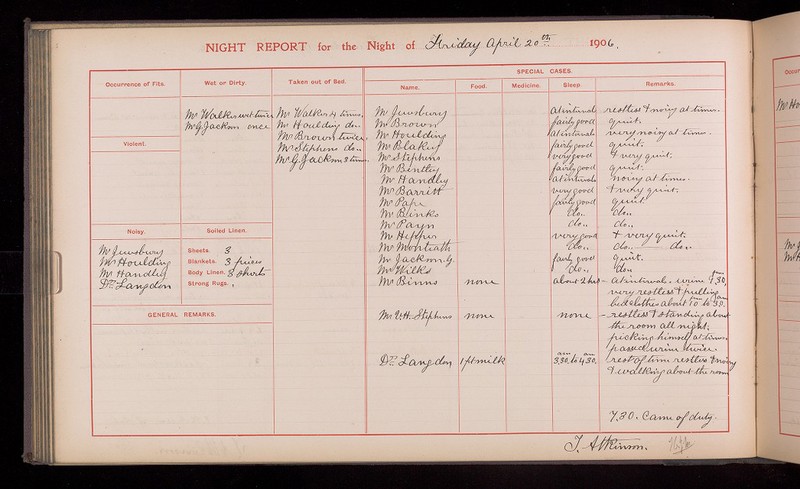 NIGHT REPORT for the Night of Friday April 20th 1906.
Occurrence of Fits.
Wet or Dirty.
Taken out of Bed.
SPECIAL CASES.
Name.
Food.
Medicine.
Sleep
Remarks.
Mr Walker wet twice
Mr G Jackson once
Mr Walker 4 times.
Mr Houlding do..
Mr Brown twice.
Mr Stephens do..
Mr G Jackson 3 times
Violent.
Noisy.
Mr Jewsbury
Mr Houlding
Mr Handley
Dr Langdon
Soiled Linen.
Sheets. 3
Blankets. 3 pieces
Body Linen. 3 shirts
Strong Rugs.
GENERAL REMARKS.
Mr Jewsbury at intervals restless & noisy at times.
Mr Brown fairly good quiet.
Mr Houlding at intervals very noisy at times.
Mr Blakey fairly good quiet.
Mr Stephens very good & very quiet.
Mr Bentley fairly good quiet.
Mr Handley at intervals noisy at times.
Mr Barritt very good & very quiet.
Mr Pape fairly good quiet
Mr Blinks do.. do..
Mr Payn do.. do..
Mr Hepper very good & very quiet.
Mr Monteath do.. do.. do..
Mr Jackson. G. fairly good quiet.
Mr Wilks do.. do..
Mr Binns none about 2 hrs at intervals. urine 7.30.
very restless & pulling
bedclothes about 10 to
Mr W.H. Stephens none none restless & standing about
the room all night.
picking himself at times.
passed urine twice.
Dr Langdon 1 pt milk 3.30. to 4.30. rest of time restless & noisy
& walking about the room
7.30. Came of duty.
T. Atkinson.